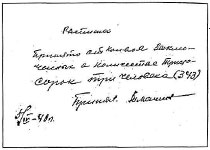 Расписка
Принято от конвоя заклю-
ченных в количестве триста
сорок три человека (343)
Принял
IV-40г.